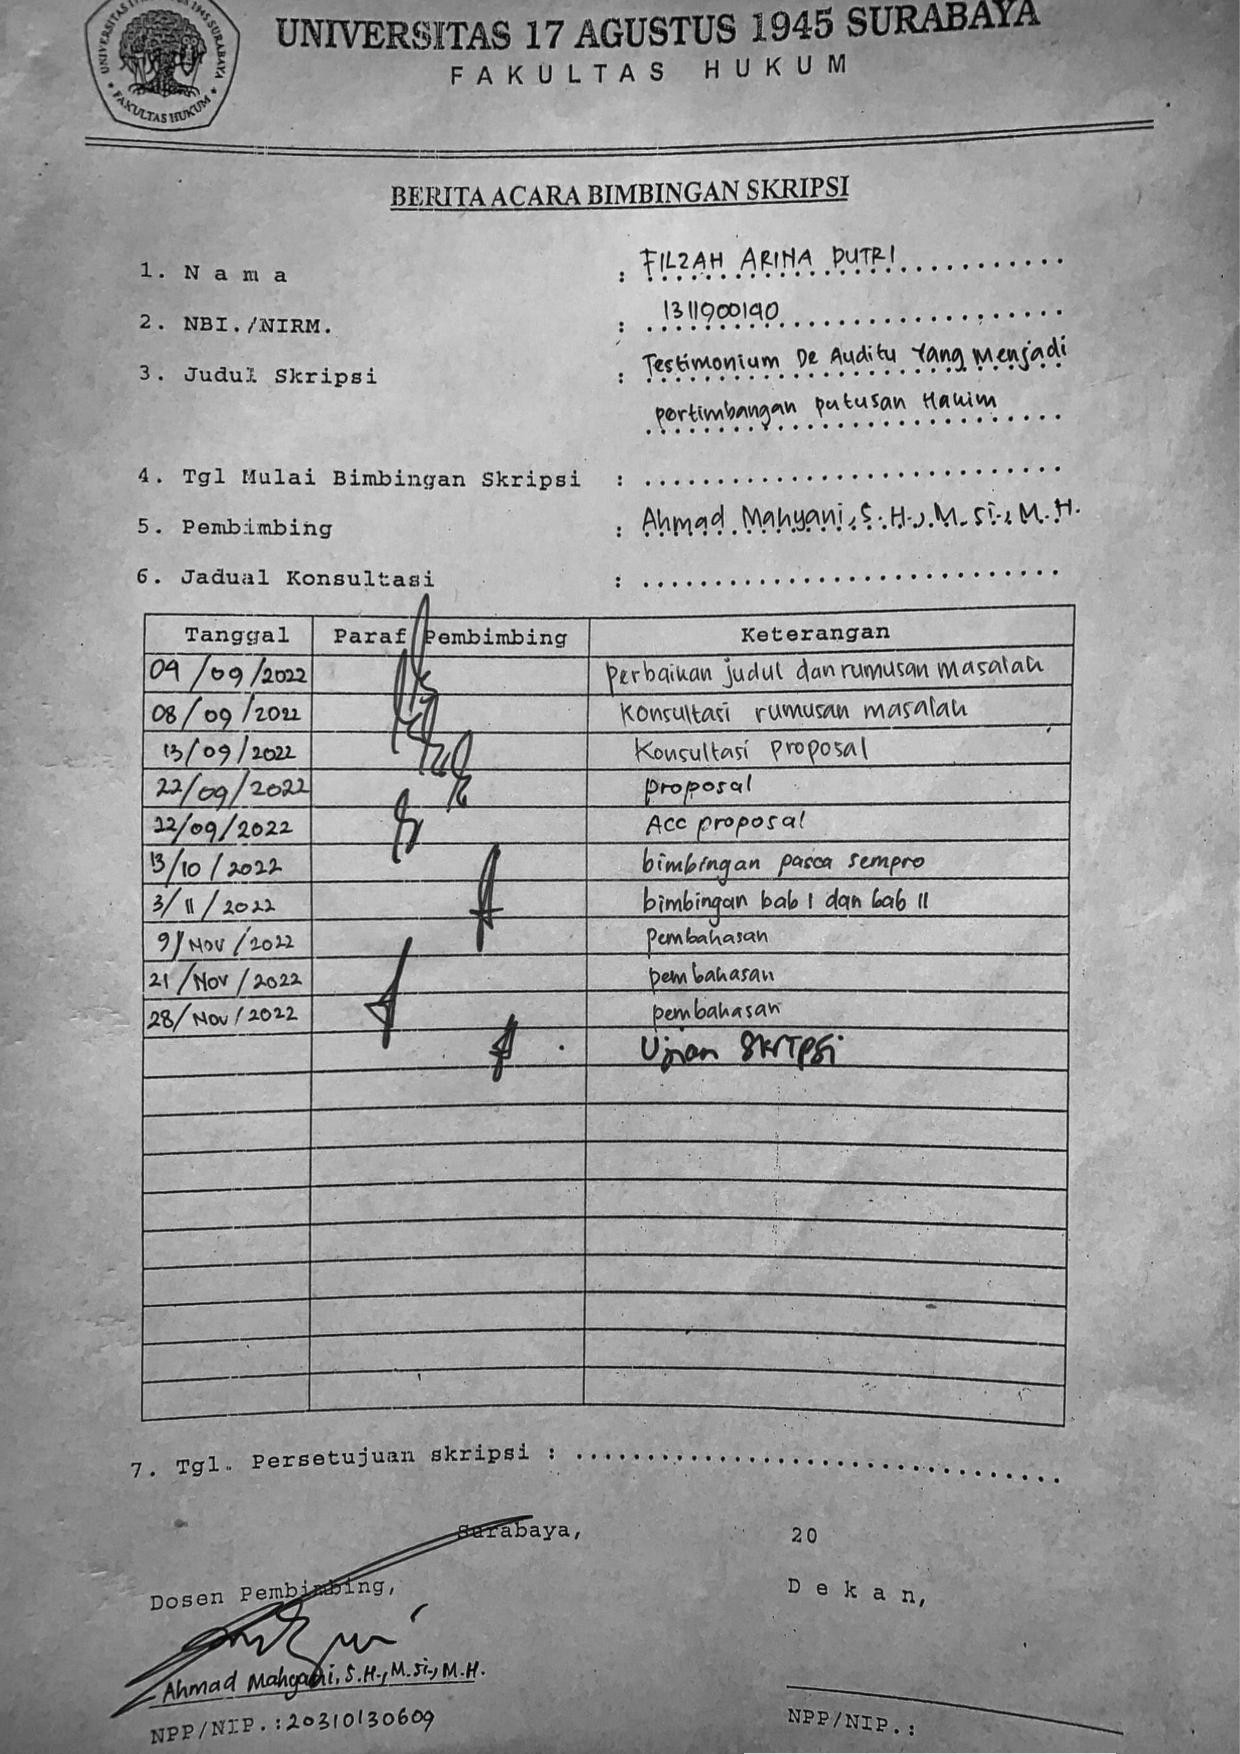 UNIVERSITAS 17 AGUSTUS 1945 SURABAYA
FAKULTAS HUKUM
UNIVERSITAS 17 AGUSTUS 1945 SURABAYA
FAKULTAS HUKUM
BERITA ACARA BIMBINGAN SKRIPSI
1. Nama : FILZAH ARINA PUTRI
2. NBI./NIRM. : 1311900190
3. Judul Skripsi : Testimonium De Auditu Yang Menjadi
pertimbangan putusan Hakim
4. Tgl Mulai Bimbingan Skripsi : ..............................
5. Pembimbing : Ahmad Mahyani, S.H., M.Si., M.H.
6. Jadual Konsultasi : ..............................
Tanggal Paraf Pembimbing Keterangan
09/09/2022 perbaikan judul dan rumusan masalah
08/09/2022 Konsultasi rumusan masalah
13/09/2022 Konsultasi proposal
22/09/2022 proposal
22/09/2022 Acc proposal
13/10/2022 bimbingan pasca sempro
3/11/2022 bimbingan bab I dan bab II
9/Nov/2022 Pembahasan
21/Nov/2022 pembahasan
28/Nov/2022 pembahasan
Ujian Skripsi
7. Tgl. Persetujuan skripsi : ..............................
Surabaya, 20
Dosen Pembimbing, Dekan,
Ahmad Mahyani, S.H., M.Si., M.H.
NPP/NIP.:20310130609 NPP/NIP.: